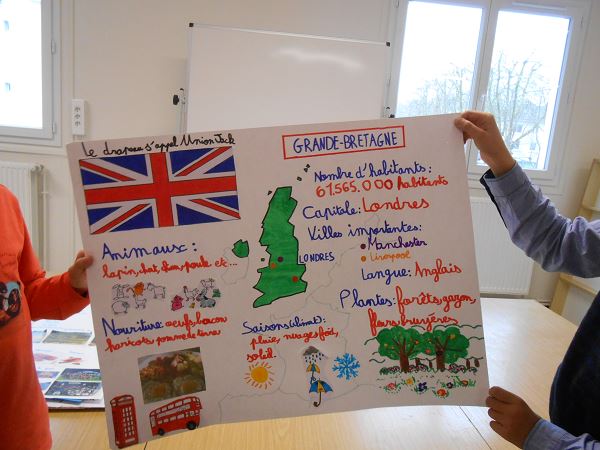 Le drapeau s'appel Union Jack
GRANDE-BRETAGNE
Nombre d'habitants:
61.565.000 habitants
Capitale: Londres
Villes importantes:
Manchester
Liverpool
Langue: Anglais
LONDRES
Animaux:
lapin, chat, chien, poule etc...
Nouriture oeufs, bacon
haricots, pomme de terre
Saisons (climat):
pluie, nuages, froid,
soleil.
Plantes: forêts, gazon,
fleurs, bruyères